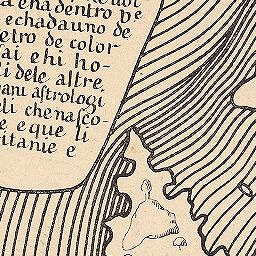 a ena dentro ve
echadauno de
etro de color
sai e hi ho-
li dele altre
vani astrologi
eli chenasco-
e, e que li
itanie e